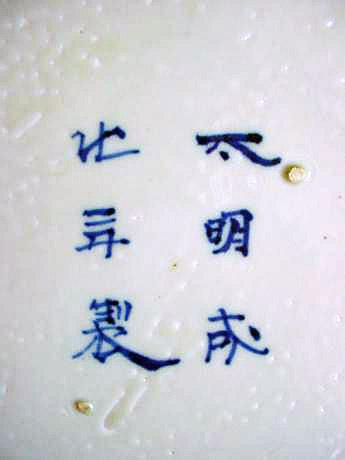 太明成
化年製